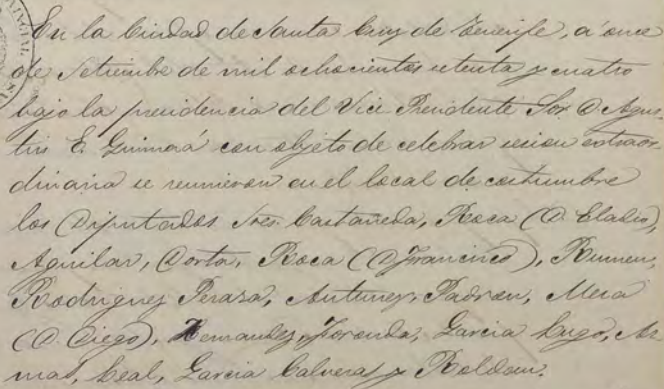 En la Ciudad de Santa Cruz de Tenerife, a' once
de Setiembre de mil ochocientos setenta y cuatro
bajo la presidencia del Vice Presidente Sor. D. Agus-
tin E. Guimerá con objeto de celebrar sesion extraor-
dinaria se reunieron en el local de costumbre
los Diputados Sres. Castañeda, Roca (D. Eladio),
Aguilar, Dorta, Roca (D. Francisco), Rumeu,
Rodriguez Peraza, Antunez, Padron, Mesa
(D. Diego), Hernandez, Foronda, Garcia Lugo, Ar-
mas, Leal, Garcia Calveras y Roldan.